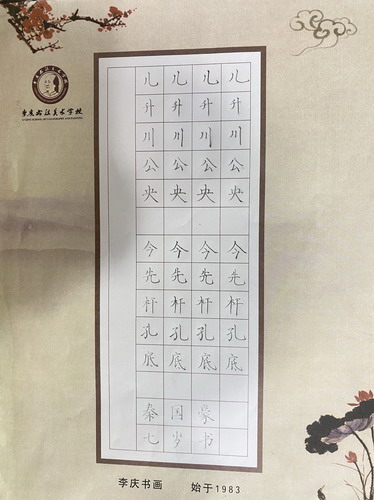 李庆书法美术学校
儿 儿 儿 儿
升 升 升 升
川 川 川 川
公 公 公 公
央 央 央 央
今 今 今 今
先 先 先 先
杆 杆 杆 杆
孔 孔 孔 孔
底 底 底 底
秦 国 豪
七 岁 书
李庆书画 始于1983